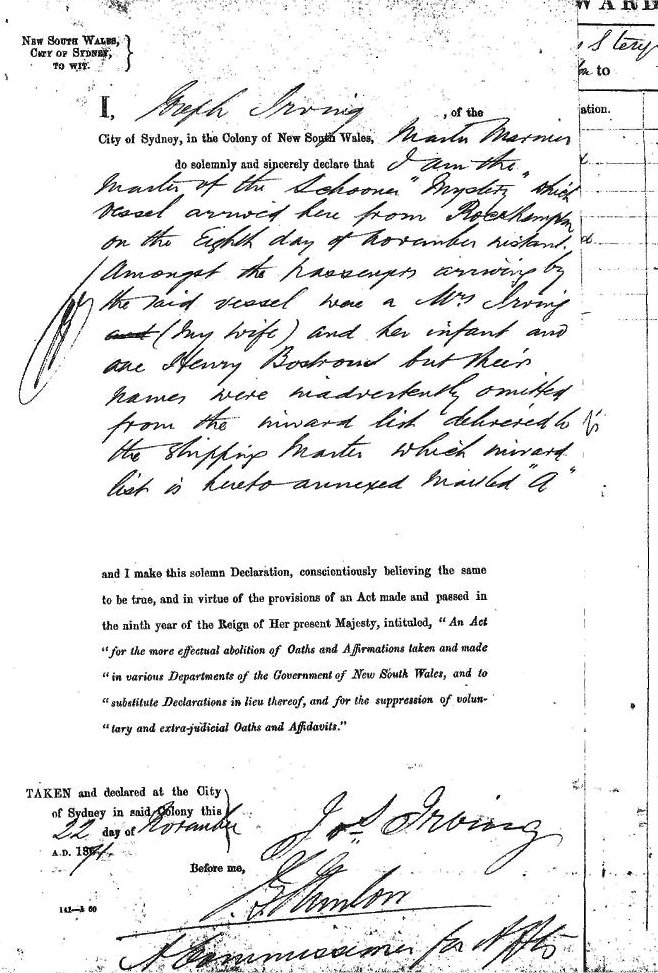 WARD
NEW SOUTH WALES,
CITY OF SYDNEY,
TO WIT.
Stery
to
ation.
I, Joseph Irving, of the
City of Sydney, in the Colony of New South Wales, Master Mariner
do solemnly and sincerely declare that I am the
Master of the Schooner "Mystery" which
vessel arrived here from Rockhampton
on the Eighth day of November instant.
Amongst the passengers arriving by
the said vessel were a Mrs Irving
and (my wife) and her infant and
one Henry but their
names were inadvertently omitted
from the inward list delivered to
the Shipping Master which inward
list is hereto annexed marked "A"
and I make this solemn Declaration, conscientiously believing the same
to be true, and in virtue of the provisions of an Act made and passed in
the ninth year of the Reign of Her present Majesty, intituled, "An Act
"for the more effectual abolition of Oaths and Affirmations taken and made
"in various Departments of the Government of New South Wales, and to
"substitute Declarations in lieu thereof, and for the suppression of volun-
"tary and extra-judicial Oaths and Affidavits."
TAKEN and declared at the City
of Sydney in said Colony this
22 day of November
A.D. 18
Jos Irving
Before me,
142—5 60
A Commissioner for Affts